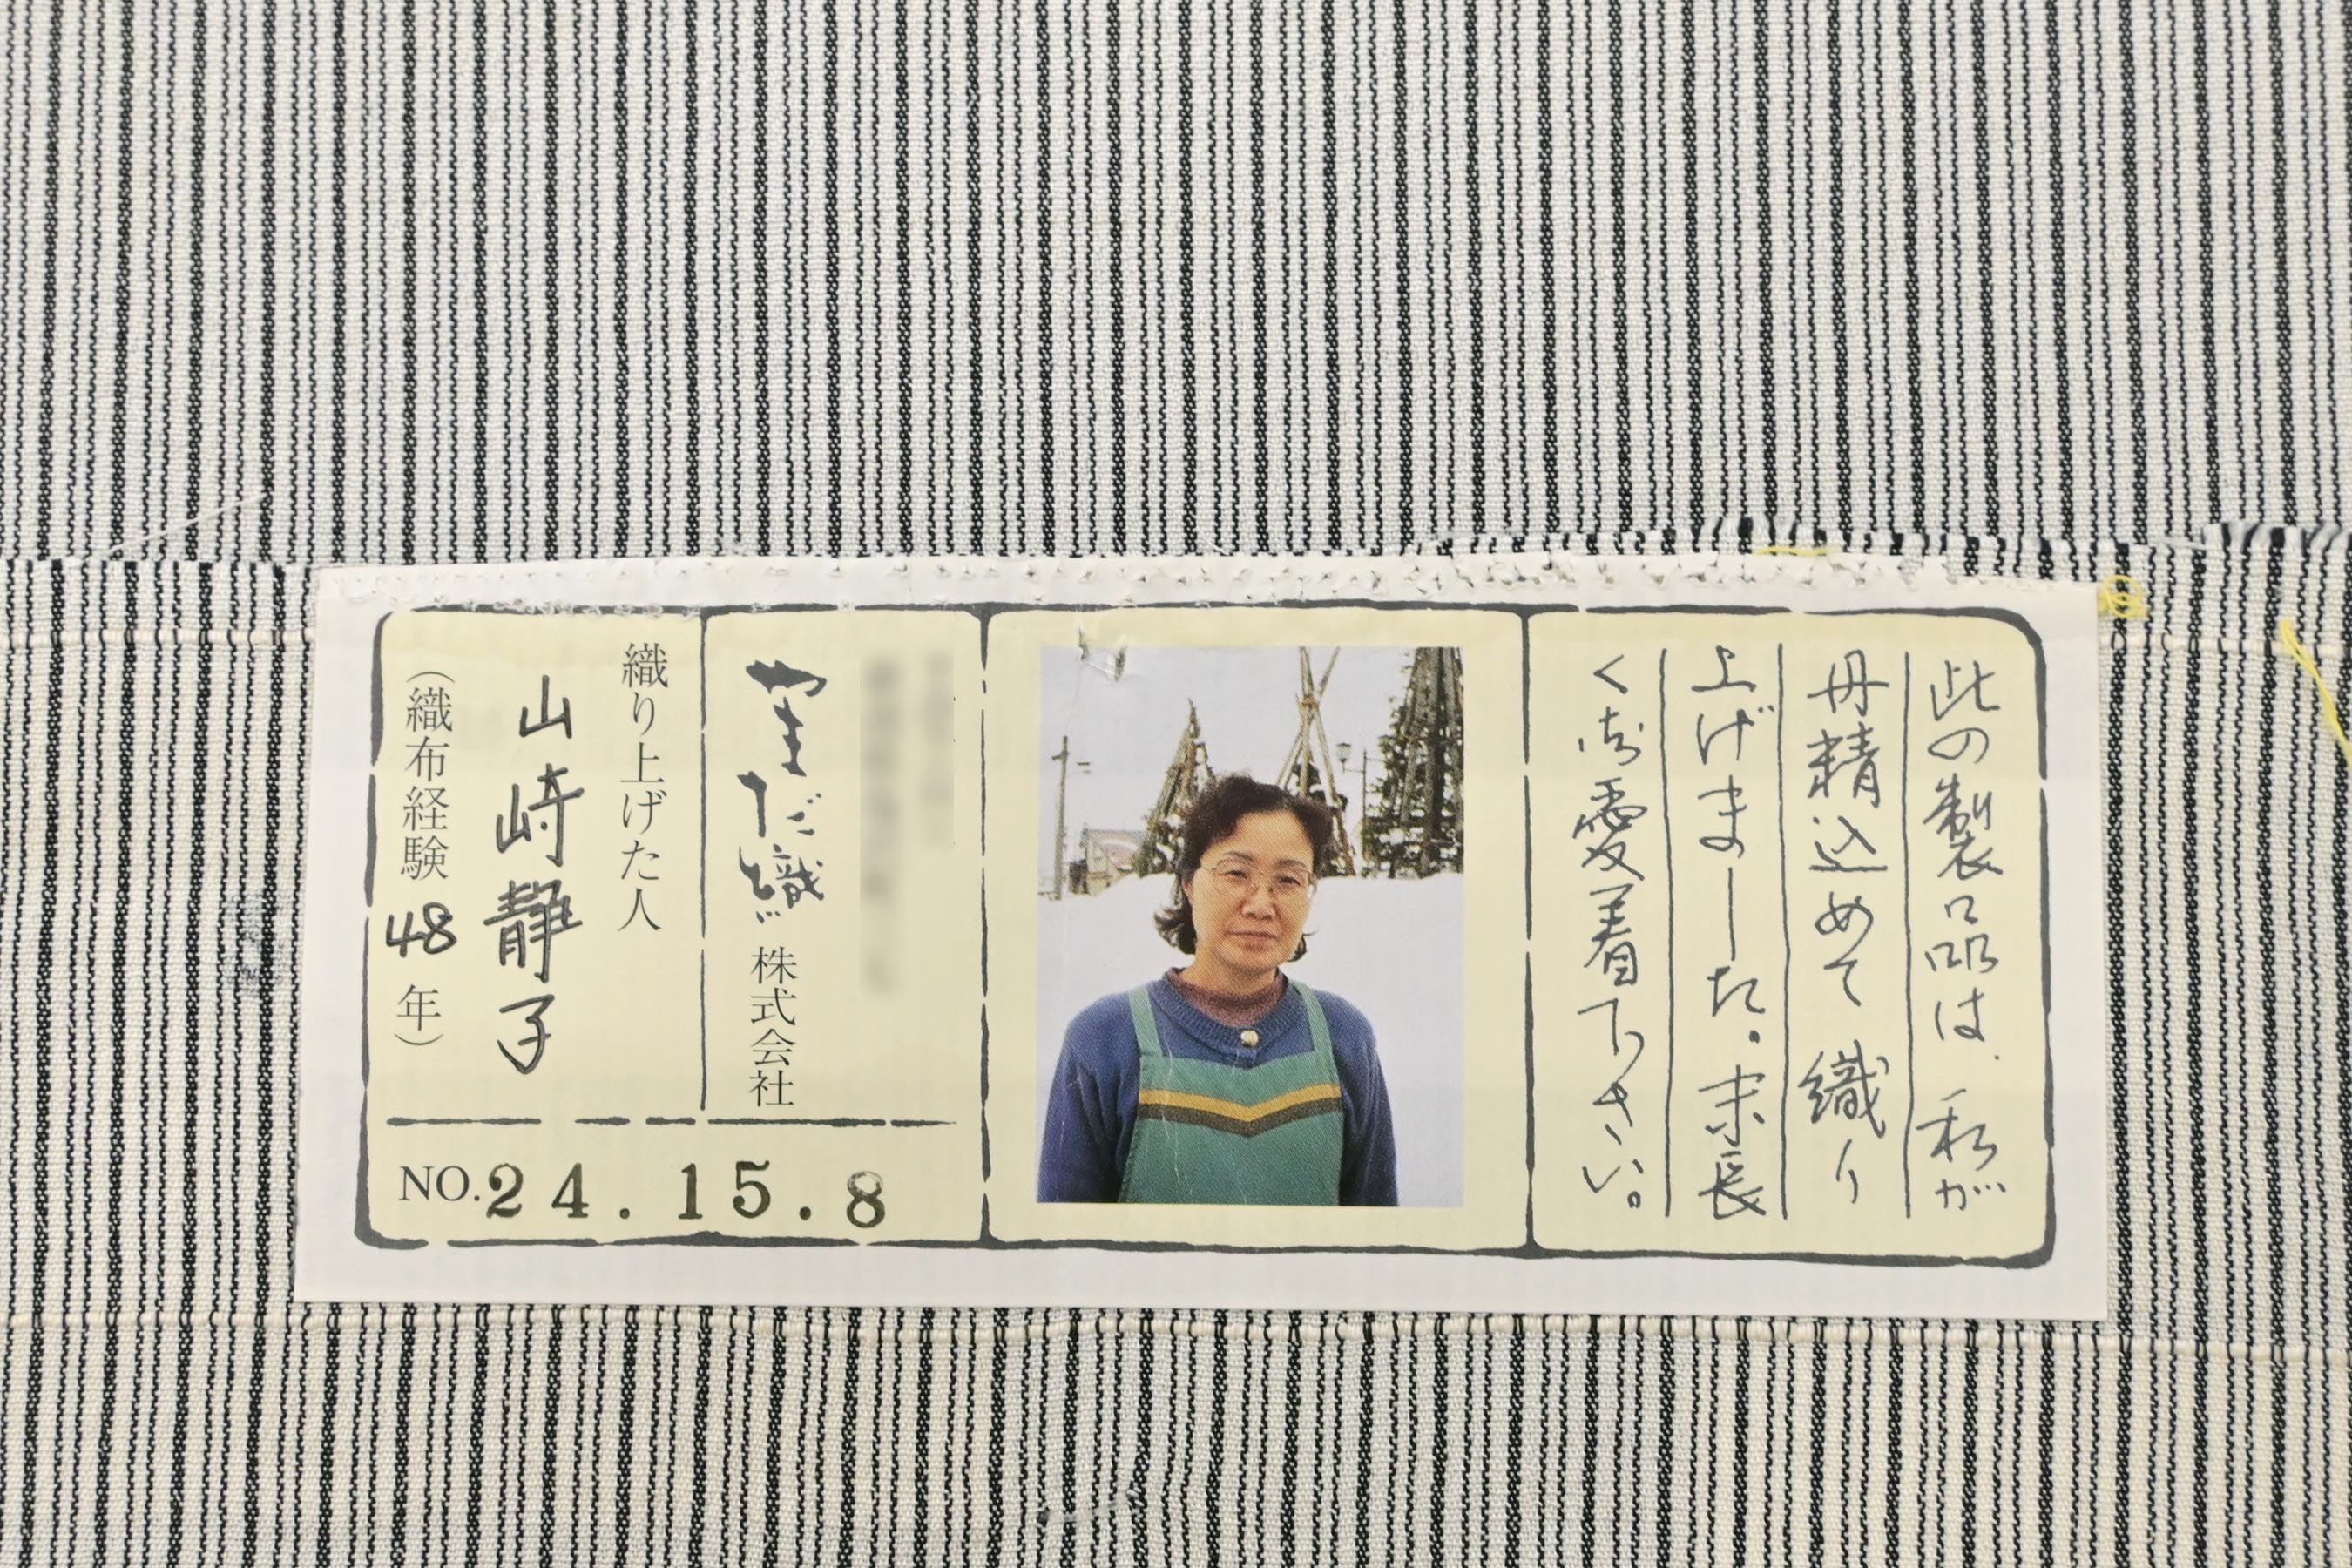 此の製品は、私が
丹精込めて織り
上げました。末長
く御愛着下さい。
やまだ織 株式会社
織り上げた人
山崎静子
(織布経験 48 年)
NO.24.15.8